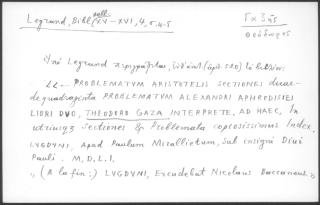 Legrand, Bibl. hell. (XV-XVI, 4, σ. 4-5
Γαζῆς
Θεόδωρος
Ὑπὸ Legrand περιγράφεται,
" PROBLEMATVM ARISTOTELIS SECTIONES duae-
dequadraginta PROBLEMATVM ALEXANDRI APHRODISIEI
LIBRI DVO, THEODORO GAZA INTERPRETE, AD HAEC, In
utriusque sectiones & Problemata copiosissimus Index.
LVGDVNI, Apud Paulum Mirallietum, Sub insigni Diui
Pauli. M,D,L,I.
" (A la fin:) LVGDVNI, Excudebat Nicolaus Baccaneus.